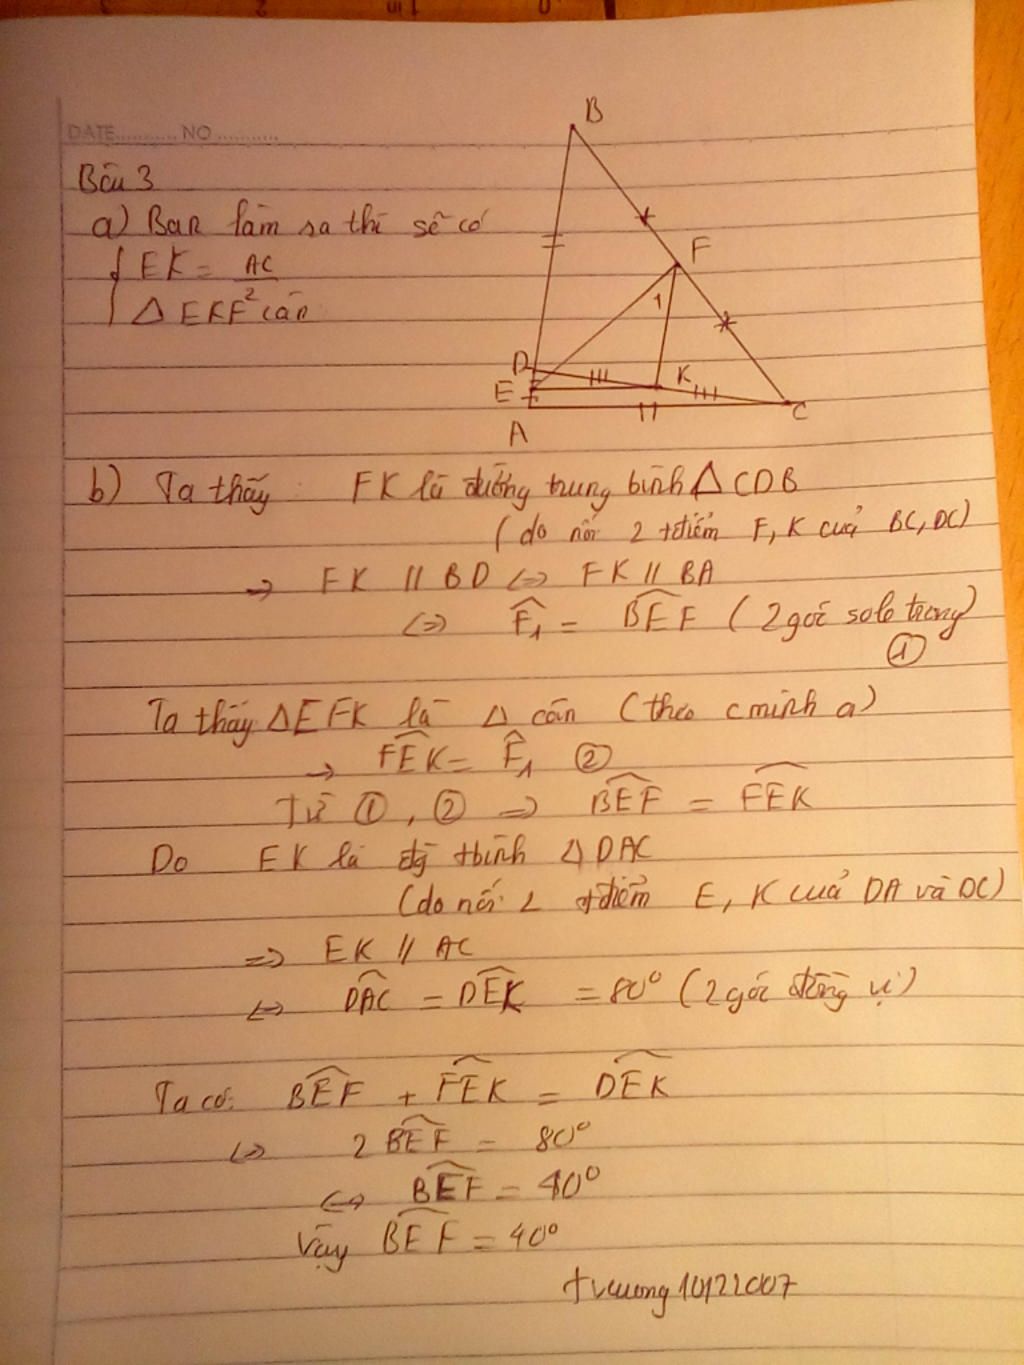 DATE........... NO ...........
Bài 3
a) Bạn làm ra thì sẽ có
EK = AC
2
Δ EKF cân
B
F
1
D
K
E
C
A
b) Ta thấy : FK là đường trung bình Δ CDB
(do nối 2 tđiểm F, K cuả BC, DC)
→ FK // BD <=> FK // BA
<=> F̂1 = BÊF (2 góc sole trong)
①
Ta thấy ΔEFK là Δ cân (theo cminh a)
→ FÊK = F̂1 ②
Từ ①, ② => BÊF = FÊK
Do EK là đg tbình Δ DAC
(do nối 2 tđiểm E, K cuả DA và DC)
=> EK // AC
<=> DÂC = DÊK = 80° (2 góc đồng vị)
Ta có: BÊF + FÊK = DÊK
<=> 2 BÊF = 80°
<=> BÊF = 40°
Vậy BÊF = 40°